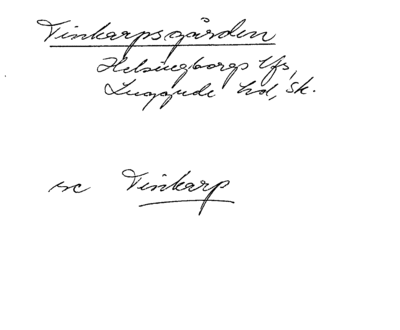 Tinkarpsgården
Helsingborgs lfs,
Luggude hd, Sk.
se Tinkarp